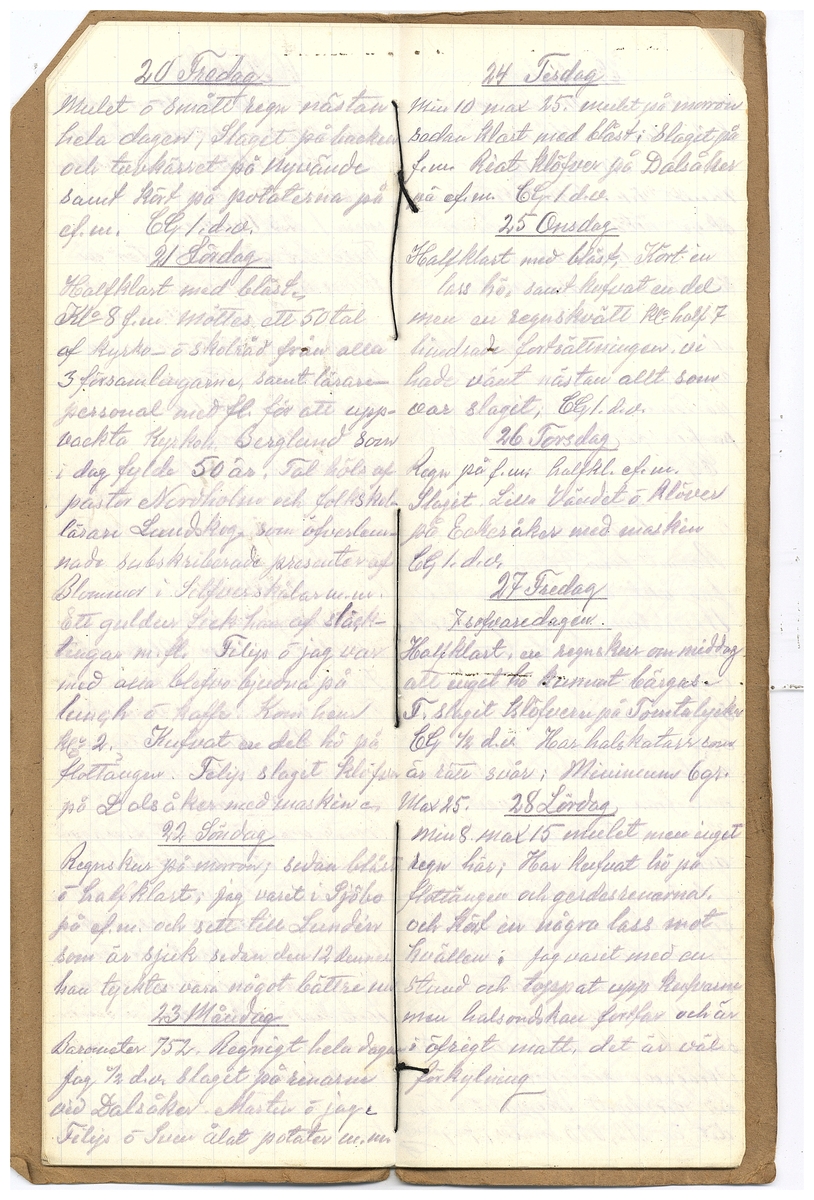 20 Fredag
Mulet ö smått regn nästan
hela dagen, Slaget på backen
och turkärret på Nyvände
samt kört på potaterna på
ef.m. CG 1.d.v.
21 Lördag
Halfklart med blåst,
Klo 8 f.m. möttes ett 50 tal
af kyrko- ö skolråd från alla
3 församlingarne, samt lärare-
personal med fl. för att upp-
vackta Kyrkoh. Berglund som
i dag fylde 50 år. Tal höls af
pastor Nordholm och folkskol-
lärare Lundskog, som öfverlem-
nade subskriberade presenter af
Blommor i Silfverskålar m.m.
Ett guldur fick han af släck-
tingar m.fl. Filip ö jag var
med alla blefvo bjudna på
lungh ö kaffe. Kom hem
klo 2. Kufvat en del hö på
flottängen. Filip slaget klöfver
på Dalsåker med maskin
22 Söndag
Regnskur på morron; sedan blåst
ö halfklart; jag varit i Sjöbo
på ef.m. och sett till Lundén
som är sjuk sedan den 12 dennes
han tycktes vara något bättre nu
23 Måndag
Barometer 752. Regnigt hela dagen
jag 1/2 d.v. slaget på renarna
vid Dalsåker. Martin ö jag
Filip ö Sven ålat potater m.m.
24 Tisdag
Min 10 max 25. mulet på morron
sedan klart med blåst; slaget på
f.m. Kört klöfver på Dalsåker
på ef.m. CG 1.d.v.
25 Onsdag
Halfklart med blåst, Kört in
lass hö, samt kufvat en del
men en regnskvätt klo half 7
hindrade fortsättningen. vi
hade vänt nästan allt som
var slaget, CG 1.d.v.
26 Torsdag
Regn på f.m. halfkl. ef.m.
Slaget Lilla Vändet ö klöver
på Ekesåker med maskin
CG 1.d.v.
27 Fredag
7 sofvaredagen.
Halfklart, en regnskur om middag
att inget hö kunnat bärgas.
F. slaget klöfvern på Tomtalyckan
CG 1/2 d.v. Har halskatarr som
är rätt svår; Minimum 6 gr.
Max 25.
28 Lördag
Min 8. max 15 mulet men inget
regn här; Har kufvat hö på
flottängen och gerdasrenarna.
och kört in några lass mot
kvällen; jag varit med en
stund och toppat upp kufvarne
men halsondskan fortfar och är
i öfrigt matt, det är väl
förkylning